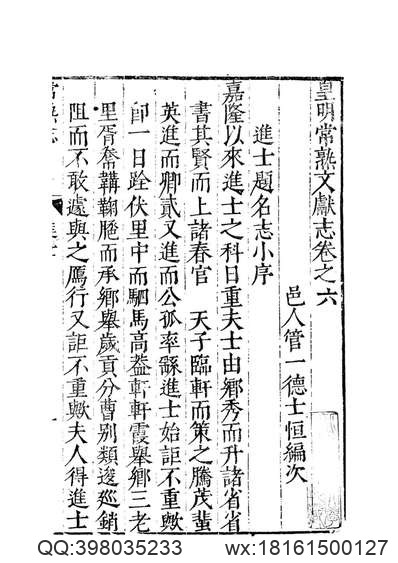 皇明常熟文獻志卷之六
邑人管一德士恒編次
進士題名志小序
嘉隆以來進士之科日重夫士由鄉秀而升諸省省
書其賢而上諸春官 天子臨軒而策之騰茂蜚
英進而卿貳又進而公孤率繇進士始詎不重歟
卽一日跧伏里中而駟馬高蓋軒軒霞舉鄉三老
里胥奮韝鞠䠆而承鄉舉歲貢分曹別類逡巡銷
阻而不敢遽與之鴈行又詎不重歟夫人得進士
QQ:398035233 wx:18161500127